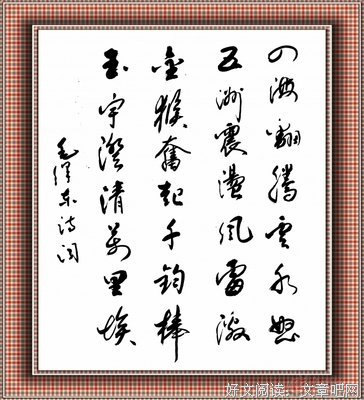 四海翻腾云水怒
五洲震荡风雷激
金猴奋起千钧棒
玉宇澄清万里埃
毛泽东诗词
好文阅读：文章吧网